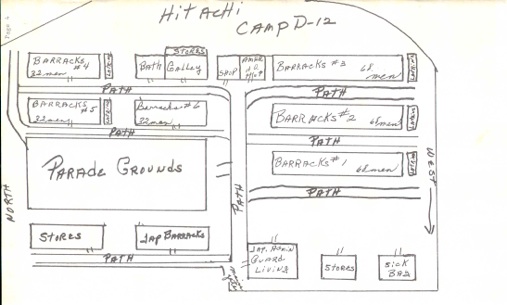 Page 4
HITACHI
CAMP D-12
BARRACKS #4
32 men
Bath
STORES
Galley
SHOP
BARRACKS #3
68 men
PATH
PATH
BARRACKS #5
32 men
Barracks #6
32 men
BARRACKS #2
68 men
PATH
PATH
PARADE GROUNDS
BARRACKS #1
68 men
PATH
NORTH
PATH
WEST
STORES
JAP BARRACKS
PATH
JAP. ADMIN
GUARD
LIVING
STORES
SICK
BAY